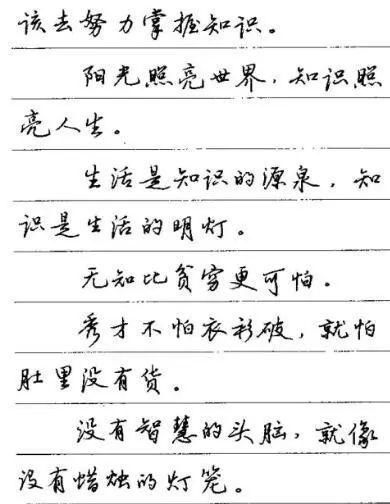 该去努力掌握知识。
阳光照亮世界，知识照
亮人生。
生活是知识的源泉，知
识是生活的明灯。
无知比贫穷更可怕。
秀才不怕衣衫破，就怕
肚里没有货。
没有智慧的头脑，就像
没有蜡烛的灯笼。